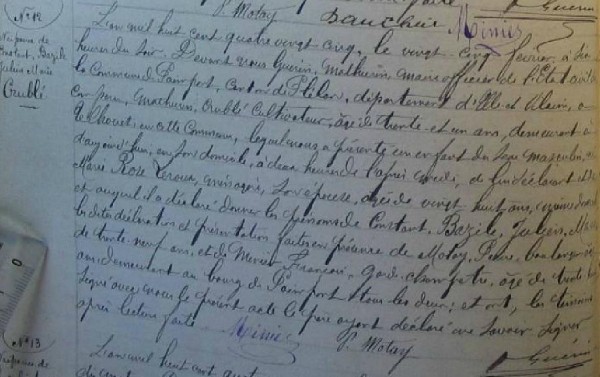 P. Motay Guérin
Dauchin Mimier
N° 12
Naissance de
Constant, Bazile
Julien
Orublé
L'an mil huit cent quatre vingt cinq, le vingt cinq février, à
heures du soir. Devant nous Guérin, Mathurin, maire officier de l'Etat civil
la Commune de Paimpont, Canton de Plélan, département d'Ille et Vilaine, a
comparu, Mathurin, Orublé Cultivateur, âgé de trente et un ans, demeurant à
en cette Commune, lequel nous a présenté un enfant du sexe masculin, né
d'aujourd'hui, en son domicile, à deux heures de l'après midi, de lui déclarant et de
Marie Rose Leroux, ménagère, son épouse, âgée de vingt huit ans,
et auquel il a déclaré donner les prénoms de Constant, Bazile, Julien, M
les dites déclaration et présentation faites en présence de Motay, Pierre, boulanger
de trente neuf ans, et de Mimier François, garde champêtre, âgé de trente
ans demeurant au bourg de Paimpont tous les deux; et ont, les témoins
signé avec nous le présent acte le père ayant déclaré ne savoir signer
après lecture faite
Mimier P. Motay Guérin
N° 13
Naissance de
L'an mil huit cent quatre